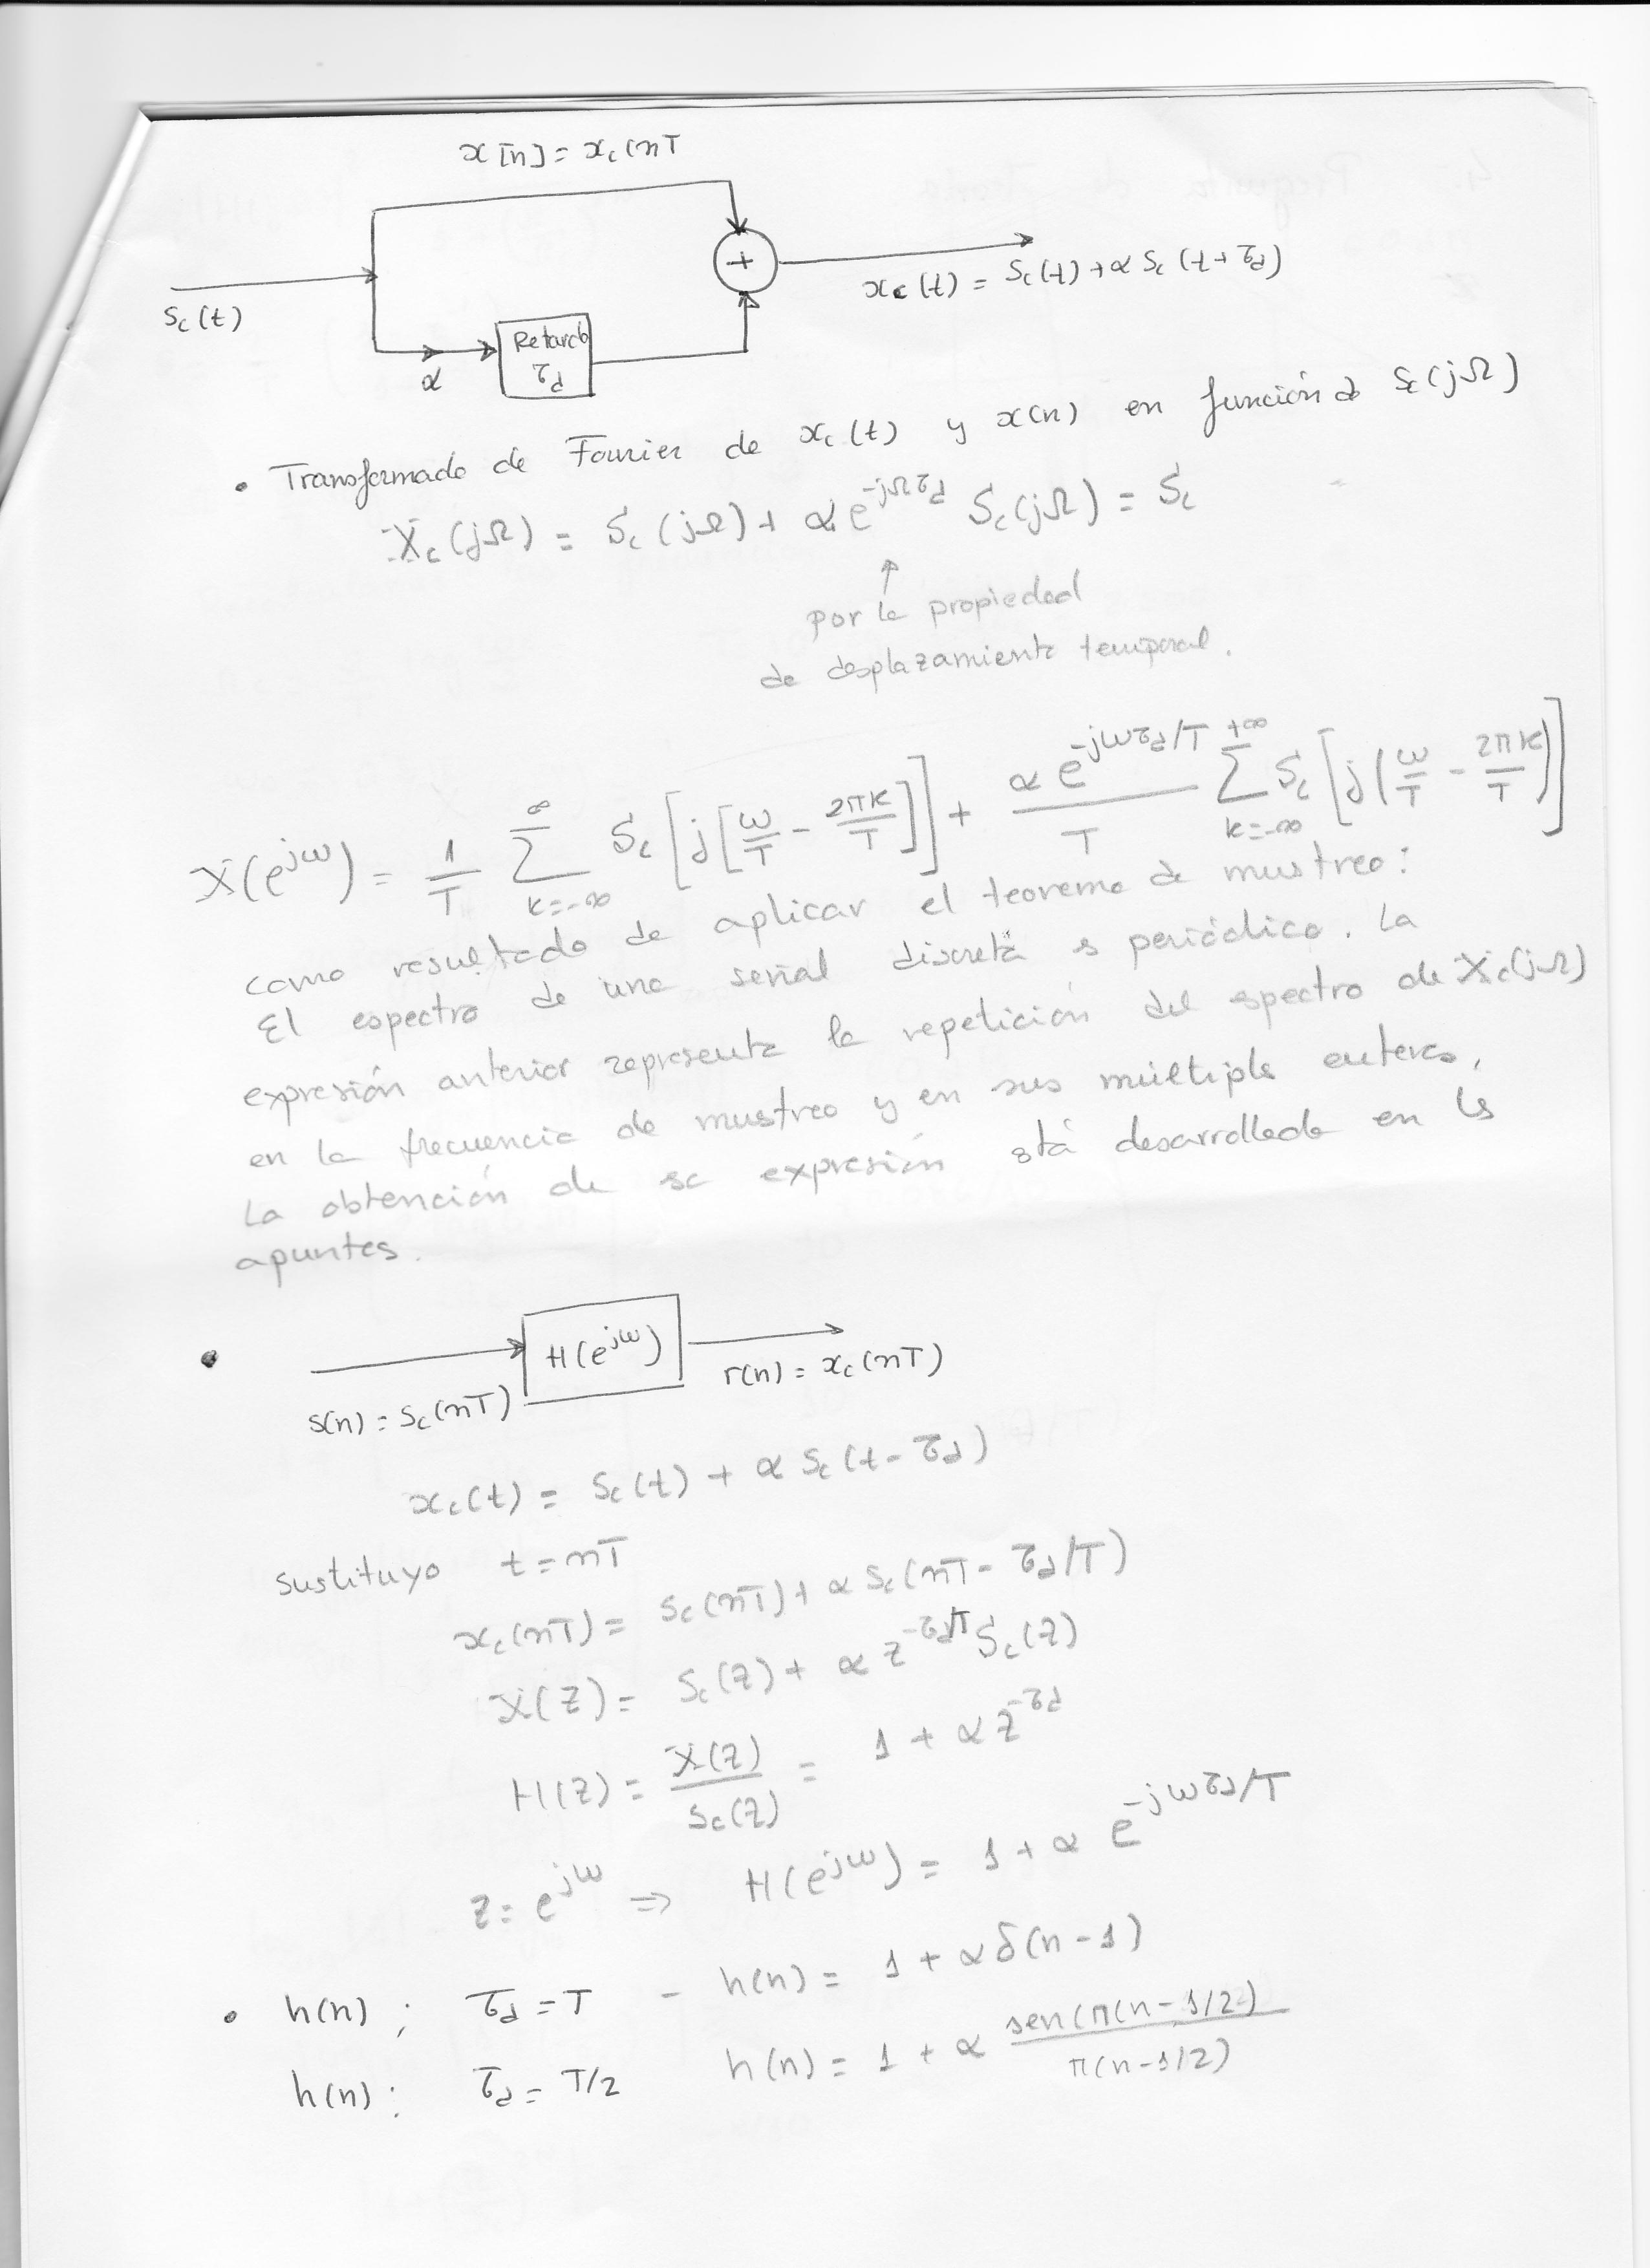 x[n] = x_c(nT
s_c(t)
α
Retardo
τ_d
+
x_c(t) = s_c(t) + α s_c(t + τ_d)
• Transformada de Fourier de x_c(t) y x(n) en función de S_c(jΩ)
X_c(jΩ) = S_c(jΩ) + α e^{-jΩτ_d} S_c(jΩ) = S_c
↑
por la propiedad
de desplazamiento temporal.
X(e^{jω}) = 1/T ∑_{k=-∞}^{∞} S_c[j[ω/T - 2πk/T]] + α e^{-jωτ_d/T}/T ∑_{k=-∞}^{+∞} S_c[j(ω/T - 2πk/T)]
como resultado de aplicar el teorema de mustreo:
El espectro de una señal discreta es periódico. La
expresión anterior representa la repetición del espectro de X_c(jΩ)
en la frecuencia de mustreo y en sus múltiplos enteros,
La obtención de sa expresión está desarrollada en los
apuntes.
•
s(n) = s_c(nT)
H(e^{jω})
r(n) = x_c(nT)
x_c(t) = s_c(t) + α s_c(t - τ_d)
sustituyo t = nT
x_c(nT) = s_c(nT) + α s_c(nT - τ_d/T)
X(z) = S_c(z) + α z^{-τ_d/T} S_c(z)
H(z) = X(z)/S_c(z) = 1 + α z^{-τ_d}
z = e^{jω} ⇒ H(e^{jω}) = 1 + α e^{-jωτ_d/T}
• h(n) ; τ_d = T - h(n) = 1 + α δ(n - 1)
h(n) : τ_d = T/2 h(n) = 1 + α sen(π(n - 1/2)/π(n - 1/2)